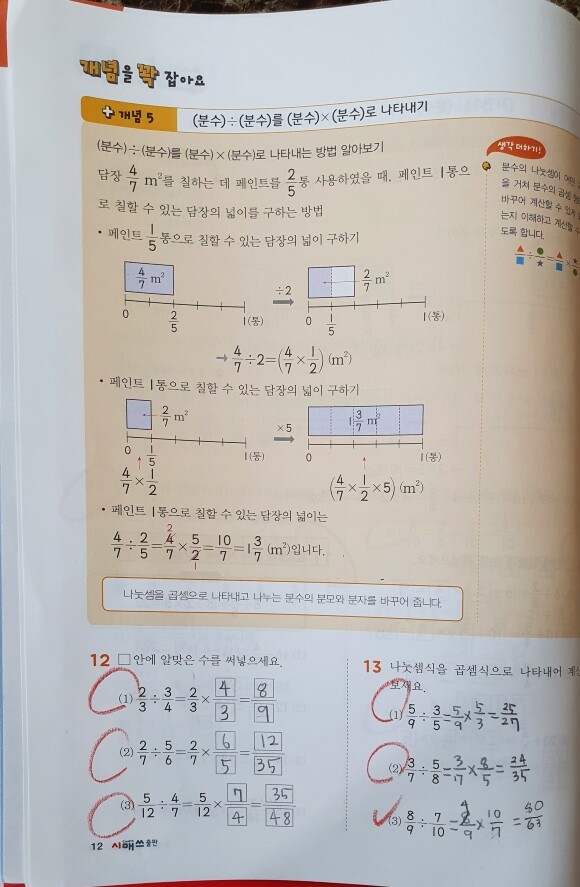 개념을 꽉 잡아요
+ 개념 5 (분수)÷(분수)를 (분수)×(분수)로 나타내기
(분수)÷(분수)를 (분수)×(분수)로 나타내는 방법 알아보기
담장 4/7 m²를 칠하는 데 페인트를 2/5통 사용하였을 때, 페인트 1통으
로 칠할 수 있는 담장의 넓이를 구하는 방법
• 페인트 1/5통으로 칠할 수 있는 담장의 넓이 구하기
4/7 m² ÷2 2/7 m²
0 2/5 1(통) 0 1/5 1(통)
→ 4/7÷2=(4/7×1/2) (m²)
• 페인트 1통으로 칠할 수 있는 담장의 넓이 구하기
2/7 m² ×5 1 3/7 m²
0 1/5 1(통) 0 1(통)
4/7×1/2 (4/7×1/2×5) (m²)
• 페인트 1통으로 칠할 수 있는 담장의 넓이는
4/7÷2/5=4/7×5/2=10/7=1 3/7 (m²)입니다.
2
1
나눗셈을 곱셈으로 나타내고 나누는 분수의 분모와 분자를 바꾸어 줍니다.
생각 더하기!
분수의 나눗셈이
을 거쳐 분수의 곱셈
바꾸어 계산할 수 있게
는지 이해하고 계산할 수
도록 합니다.
▲/■÷●/★=▲/■×★/●
12 □안에 알맞은 수를 써넣으세요.
(1) 2/3÷3/4=2/3×4/3=8/9
(2) 2/7÷5/6=2/7×6/5=12/35
(3) 5/12÷4/7=5/12×7/4=35/48
13 나눗셈식을 곱셈식으로 나타내어
보세요.
(1) 5/9÷3/5=5/9×5/3=25/27
(2) 3/7÷5/8=3/7×8/5=24/35
(3) 8/9÷7/10=8/9×10/7=80/63
12 시매쓰출판